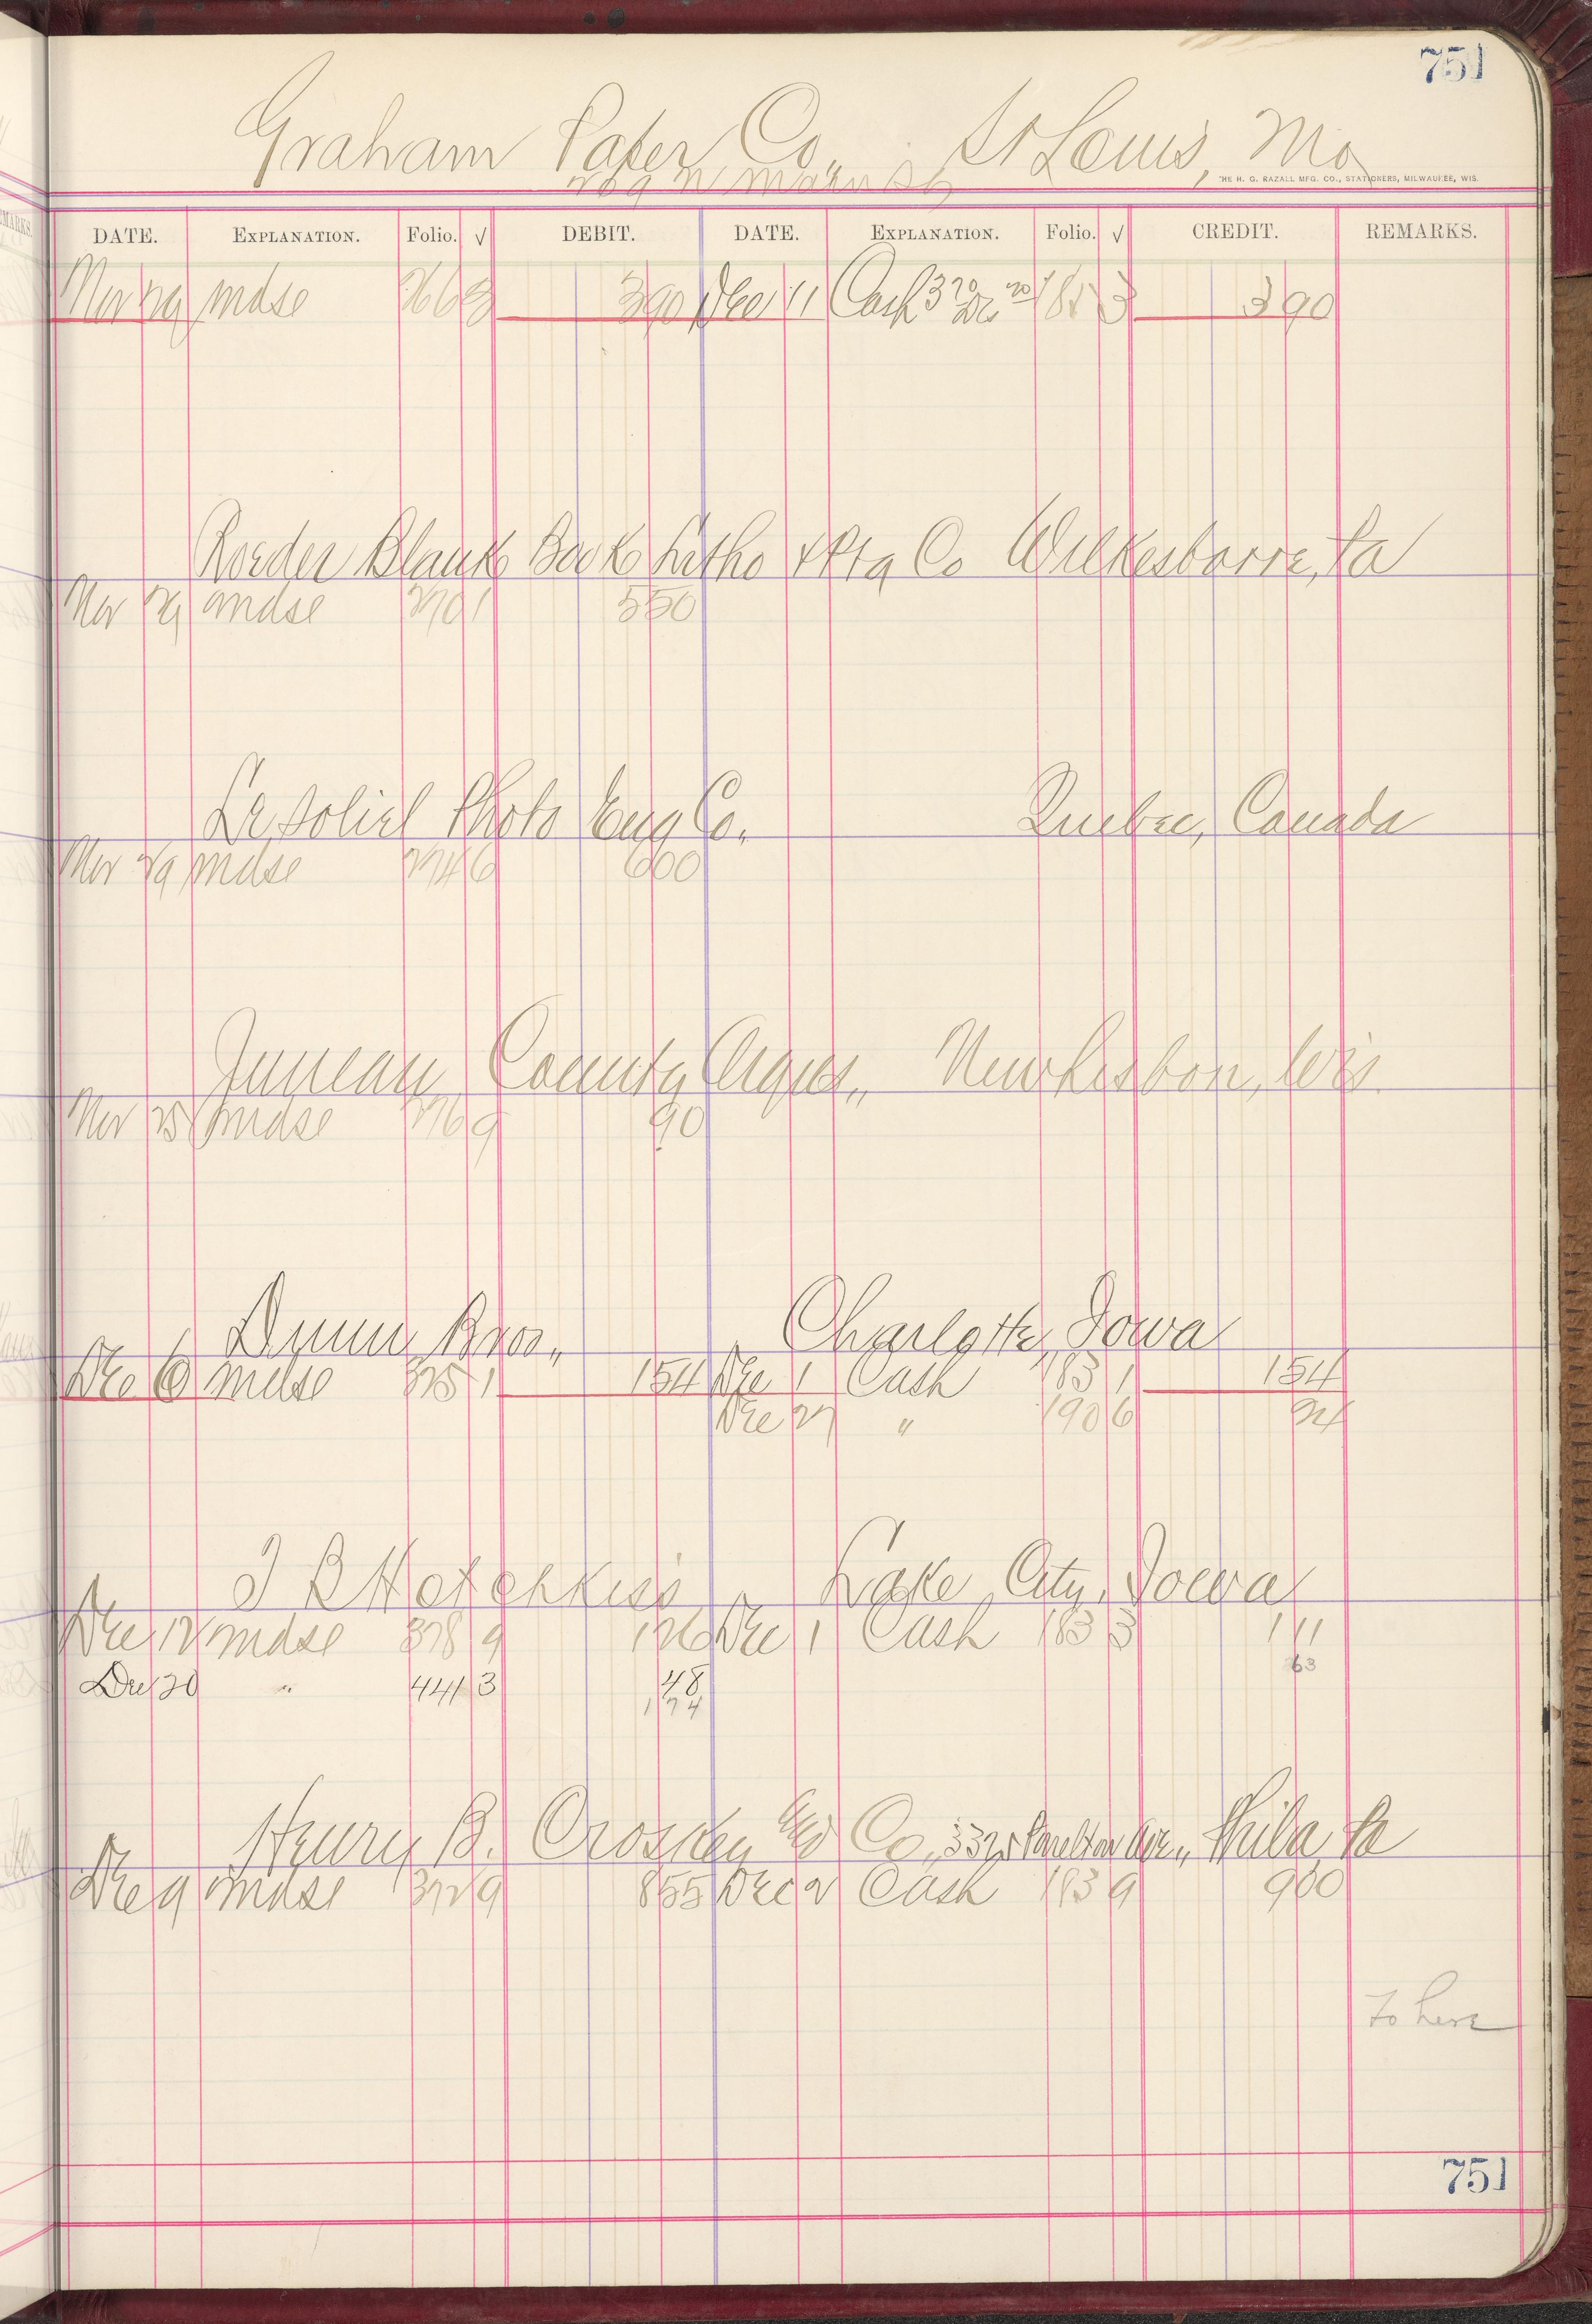 751
Graham Paper Co., St Louis, Mo
THE H. G. RAZALL MFG. CO., STATIONERS, MILWAUKEE, WIS.
DATE. EXPLANATION. Folio. √ DEBIT. DATE. EXPLANATION. Folio. √ CREDIT. REMARKS.
Nov 29 mdse 266 3 3 90 Dec 11 Cash 3 70 Dis 20 185 3 3 90
Roeder Blank Book Litho & Ptg Co Wilkesbarre, Pa
Nov 29 mdse 270 1 5 50
Le Soliel Photo Eng Co. Quebec, Canada
Nov 29 mdse 274 6 6 00
Juneau County Argus, New Lisbon, Wis.
Nov 25 mdse 276 9 90
Dunn Bros., Charlotte, Iowa
Dec 6 mdse 325 1 1 54 Dec 1 Cash 183 1 1 54
Dec 27 " 190 6 24
J B Hotchkiss Lake City, Iowa
Dec 12 mdse 378 9 1 26 Dec 1 Cash 183 3 1 11
63
Dec 20 " 441 3 48
1 74
Henry B. Croskey & Co., Phila Pa
Dec 9 mdse 372 9 8 55 Dec 2 Cash 183 9 9 00
to here
751